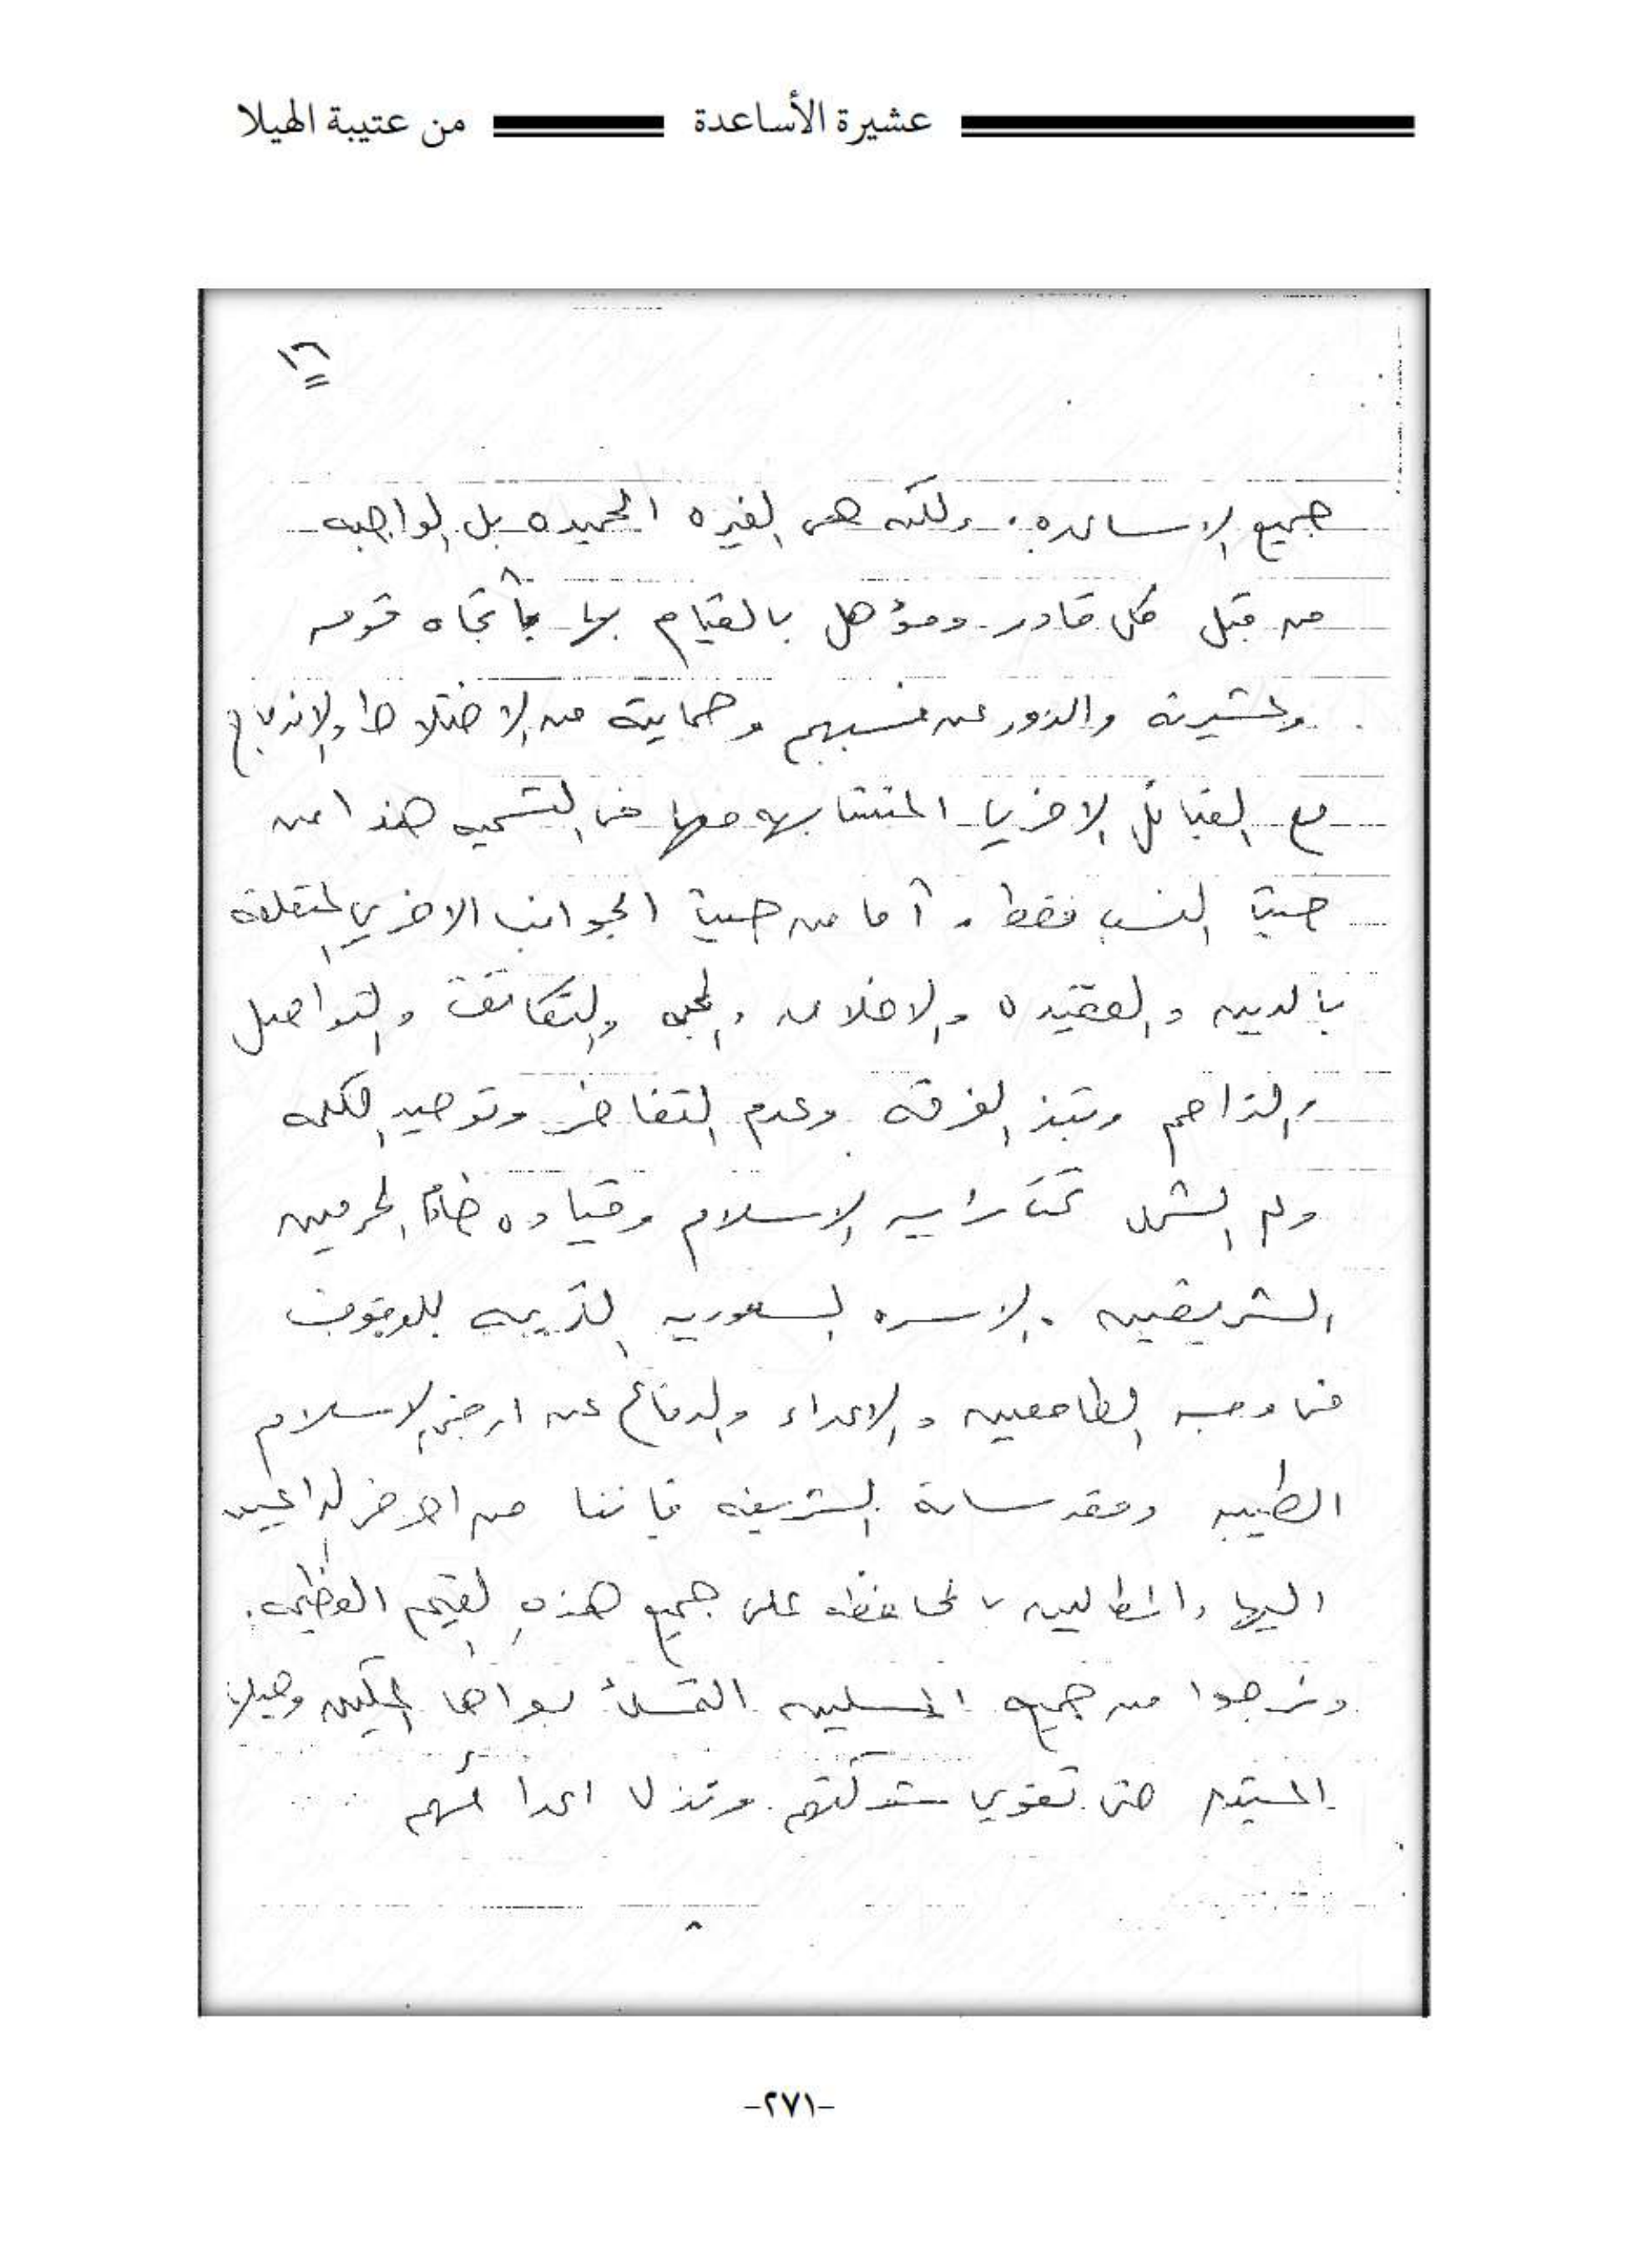 عشيرة الأساعدة من عتيبة الهيلا
١٦
جميع الاساعده. ولكنه هى الغيره الحميده بل الواجبه
من قبل كل قادر ومؤهل بالقيام بها تجاه قومه
وعشيرته والذود عن نسبهم وحمايته من الاختلاط والاندماج
مع القبائل الاخريا المتشابهه معها فى التسميه هذا من
حيث النسب فقط. أما من حيث الجوانب الاخري المتعلقة
بالدين والعقيده والاخلاق والمحبه والتكاتف والتواصل
والتراحم ونبذ الفرقه وعدم التفاخر وتوحيد الكلمه
ولم الشمل تحت رايه الاسلام وقياده خادم الحرمين
الشريفين والاسره السعوديه الكريمه للوقوف
فى وجه الطامعين والاعداء والدفاع عن ارض الاسلام
الطيبه ومقدساته الشريفه فاننا من احرص الداعين
اليها والمطالبين بالمحافظه على جميع هذه القيم العظيمه.
ونرجوا من جميع المسلمين التمسك بهذا الحبل المتين
حتى تقوي شوكتهم وتذل اعدائهم
-٢٧١-